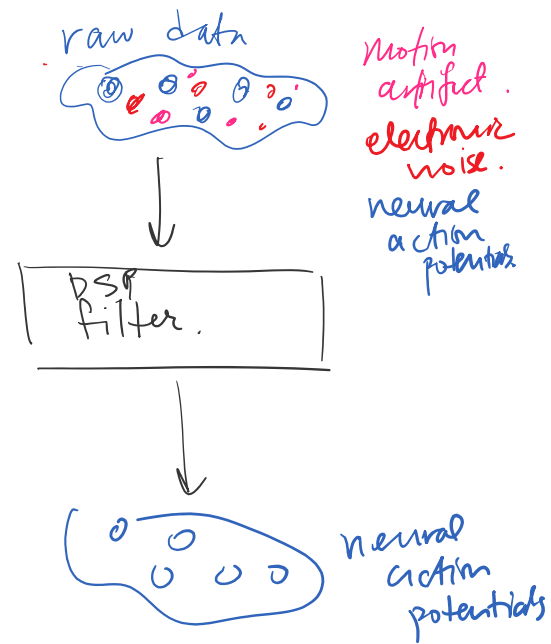 raw data
motion
artifact.
electronic
noise.
neural
action
potentials
DSP
filter.
neural
action
potentials